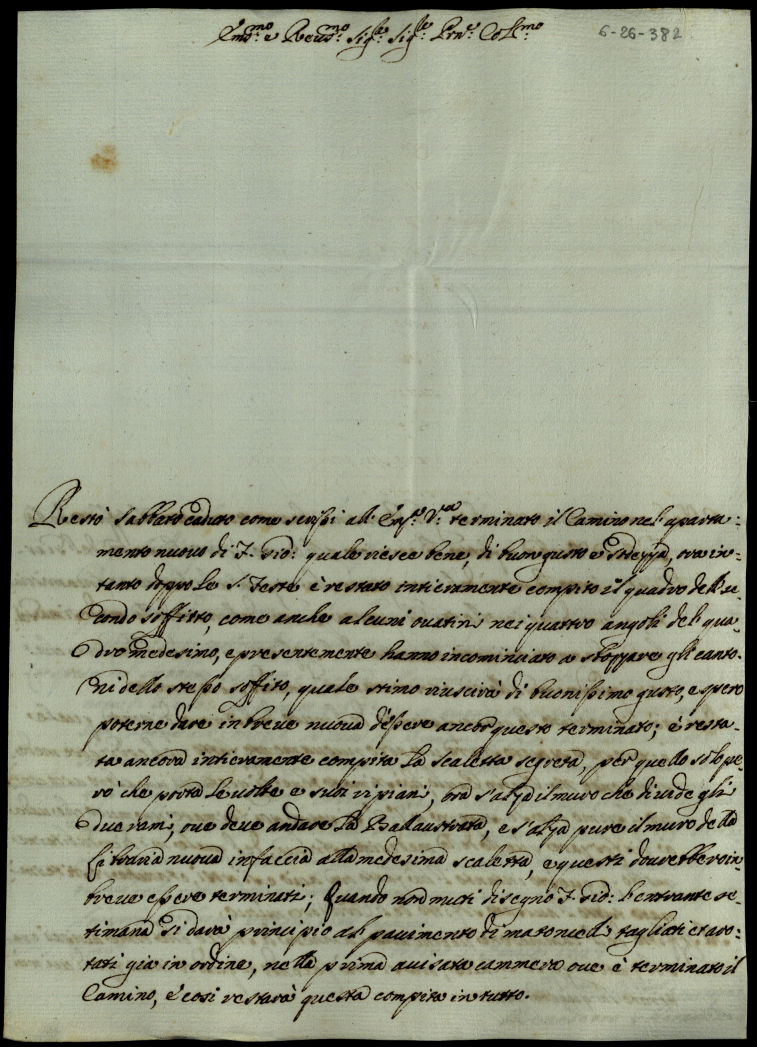 Em.mo e Reu.mo Sig.re Sig.re Prne Col.mo
6-26-382
Restò Sabbato caduto come scrissi all' Em.a V.ra terminato il Camino nel' aparta-
mento nuovo di F. Gio: quale riesce bene, di buon gusto e , ora in-
tanto doppo le S. Feste è restato intieramente compito il quadro dell' se-
condo soffitto, come anche alcuni ouatini nei quattro angoli del' qua-
dro medesimo, e presentemente hanno incominciato a stoppare gli canto-
ni dello stesso soffito, quale stimo riuscirà di buonissimo gusto, e spero
poterne dare in breue nuoua d'essere ancor questo terminato; è resta-
ta ancora intieramente compita la scaletta segreta, per quello solo pe-
rò che porta le uolte e suoi ripiani, ora s'alza il muro che diuide gli
due rami, oue deue andare la Ballaustrata, e s'alza pure il muro della
Libraria nuoua in faccia alla medesima scaletta, e questi dourebbero in
breue essere terminati; Quando non muti disegno F. Gio: l'entrante se-
timana si darà principio al' pauimento di matoncelli tagliati et aro-
tati gia in ordine, nella prima auisata cammera oue è terminato il
Camino, e così restarà questa compita in tutto.